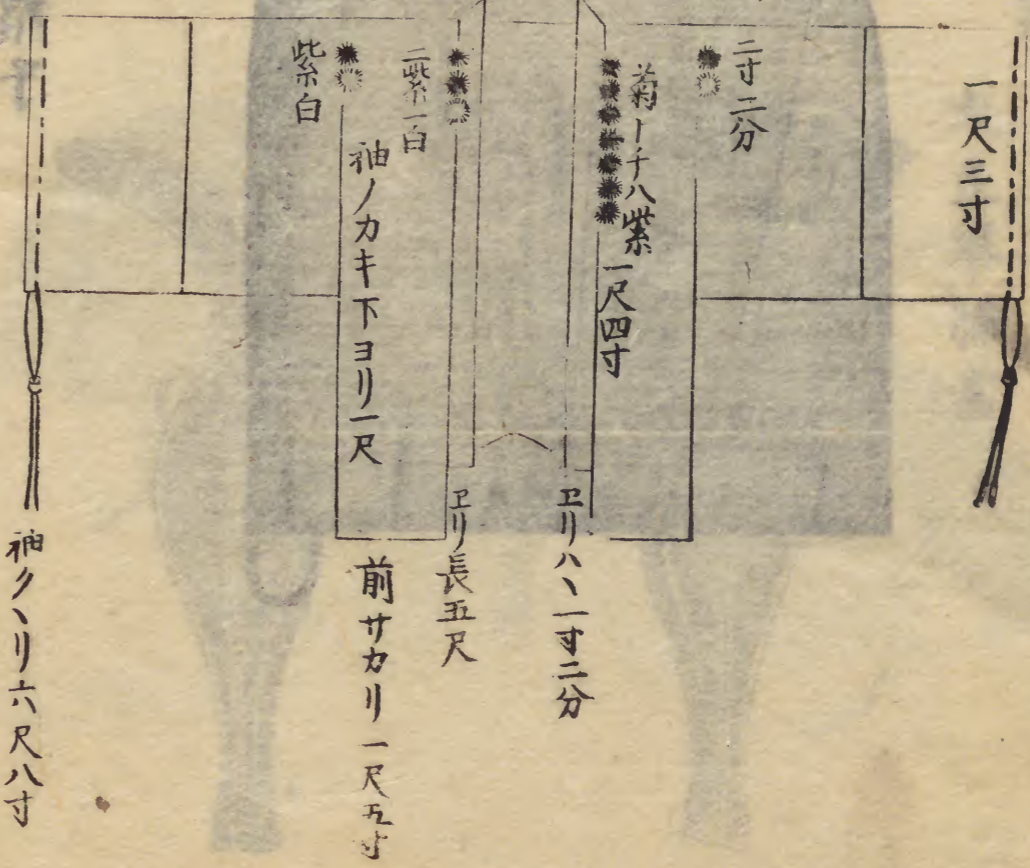 一尺三寸
二寸二分
菊トチハ紫
一尺四寸
ヱリハヽ一寸二分
二紫一白
ヱリ長五尺
紫白
袖ノカキ下ヨリ一尺
前サカリ一尺五寸
袖クヽリ六尺八寸